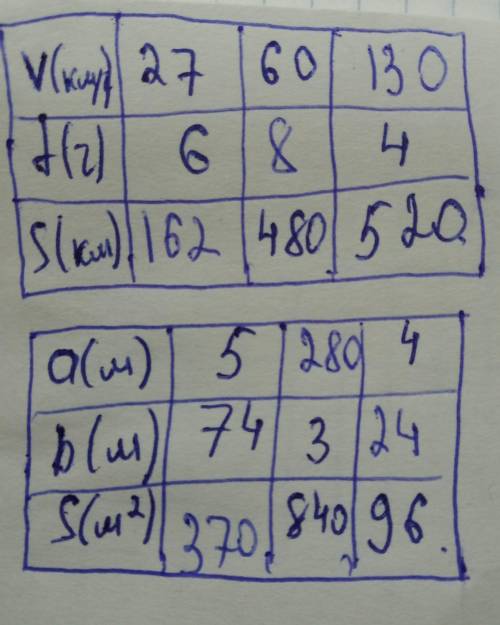 V(км/г) 27 60 130
t(г) 6 8 4
S(км) 162 480 520
a(м) 5 280 4
b(м) 74 3 24
S(м²) 370 840 96